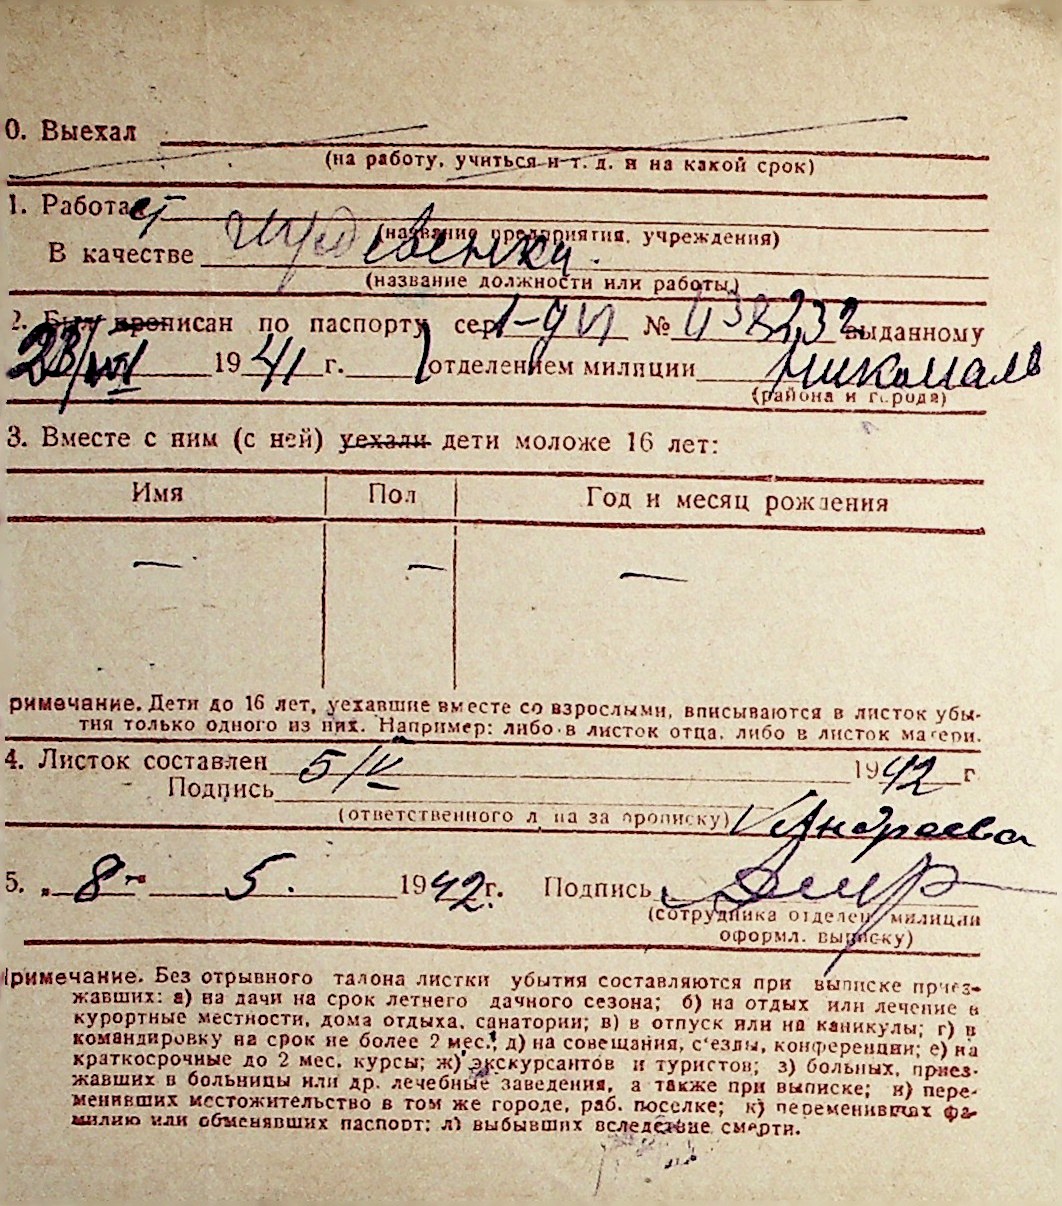 0. Выехал
(на работу, учиться и т. д. и на какой срок)
1. Работает
(название предприятия, учреждения)
В качестве иждивенки.
(название должности или работы)
2. Был прописан по паспорту сер. № выданному
28/VII 1941 г. 1 отделением милиции
(района и города)
3. Вместе с ним (с ней) уехали дети моложе 16 лет:
Имя Пол Год и месяц рождения
— — —
римечание. Дети до 16 лет, уехавшие вместе со взрослыми, вписываются в листок убы-
тия только одного из них. Например: либо в листок отца, либо в листок матери.
4. Листок составлен 5/V 1942 г.
Подпись
(ответственного лица за прописку) Андреева
5. „8-" 5. 1942 г. Подпись
(сотрудника отделен. милиции
оформл. выписку)
Примечание. Без отрывного талона листки убытия составляются при выписке приез-
жавших: а) на дачи на срок летнего дачного сезона; б) на отдых или лечение в
курортные местности, дома отдыха, санатории; в) в отпуск или на каникулы; г) в
командировку на срок не более 2 мес.; д) на совещания, с'езды, конференции; е) на
краткосрочные до 2 мес. курсы; ж) экскурсантов и туристов; з) больных, приез-
жавших в больницы или др. лечебные заведения, а также при выписке; и) пере-
менивших местожительство в том же городе, раб. поселке; к) переменивших фа-
милию или обменявших паспорт; л) выбывших вследствие смерти.